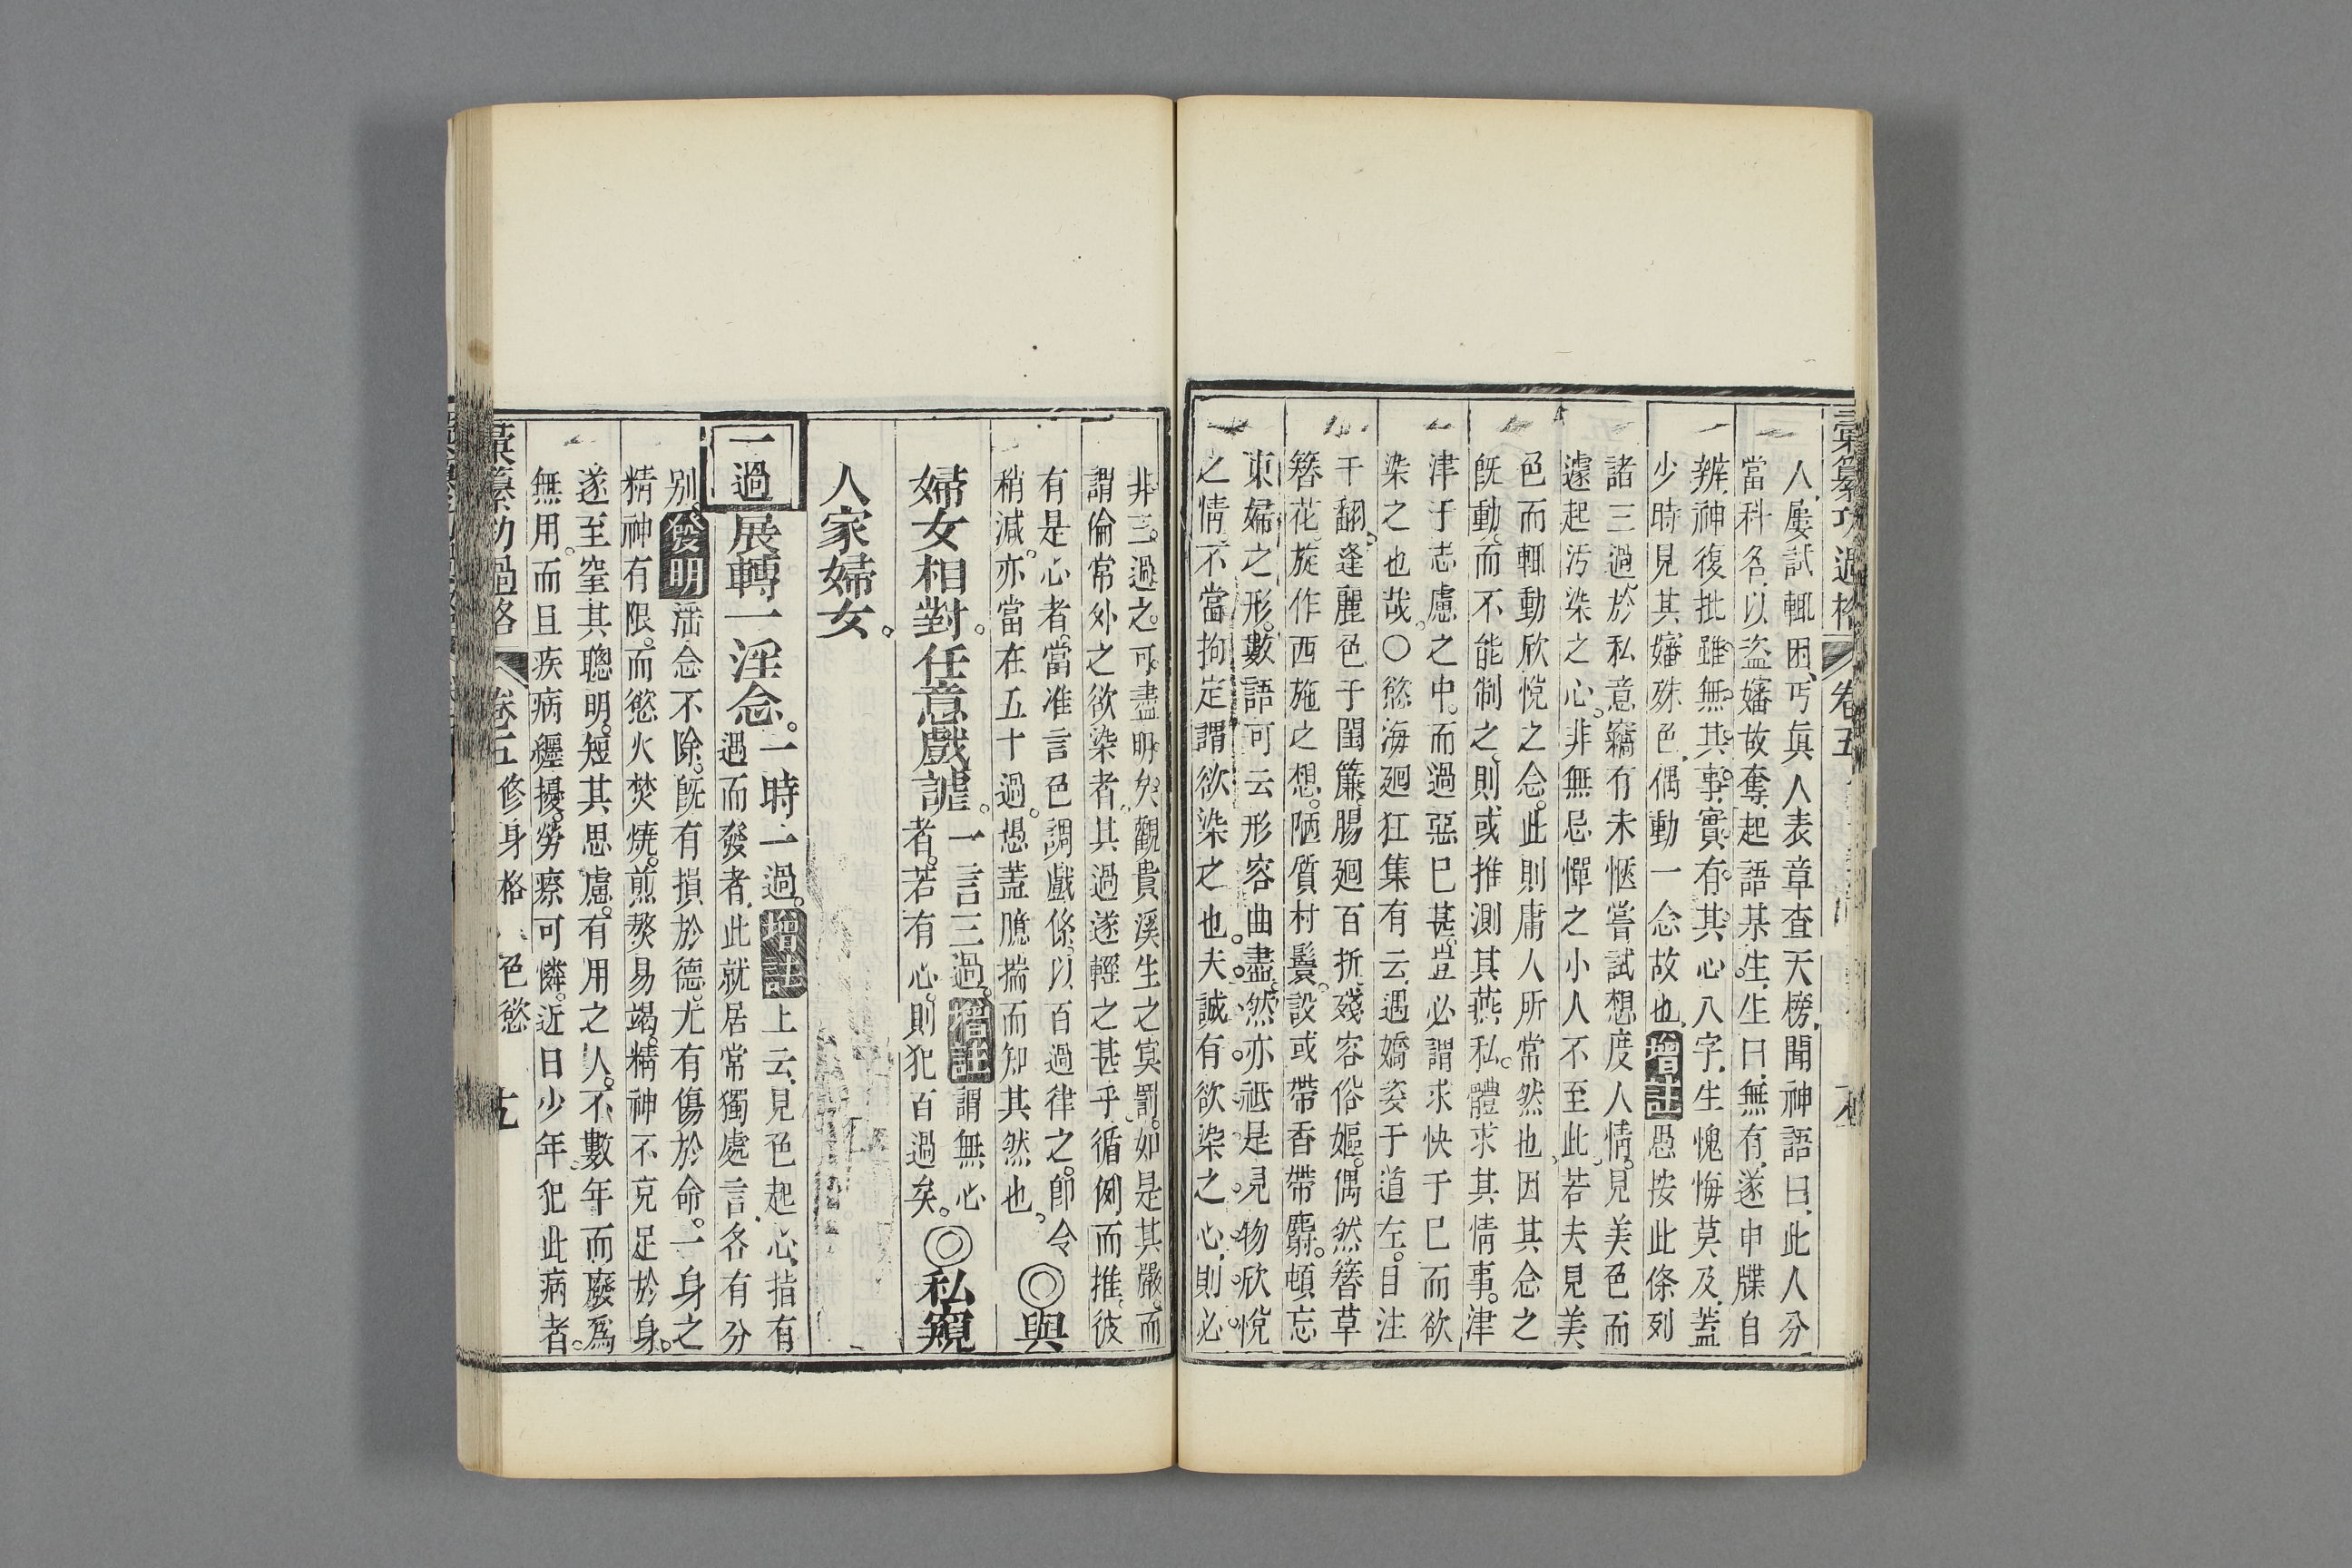 彙纂功過格 卷五
人屢試輒困丐眞人表章查天榜聞神語曰此人分
當科名以盗嬸故奪起語某生生曰無有遂申牒自
辨神復批雖無其事實有其心八字生愧悔莫及蓋
少時見其嬸殊色偶動一念故也增註愚按此條列
諸三過於私意竊有未愜嘗試想度人情見美色而
遽起汚染之心非無忌憚之小人不至此若夫見美
色而輒動欣悅之念此則庸人所常然也因其念之
旣動而不能制之則或推測其燕私體求其情事津
津于志慮之中而過惡已甚豈必謂求快于已而欲
染之也哉〇慾海廻狂集有云遇嬌姿于道左目注
千翻逢麗色于閨簾腸廻百折殘容俗嫗偶然簪草
簪花旋作西施之想陋質村鬟設或帶香帶麝頓忘
東婦之形數語可云形容曲盡然亦祗是見物欣悅
之情不當拘定謂欲染之也夫誠有欲染之心則必
非三過之可盡明矣觀貴溪生之寘罰如是其嚴而
謂倫常外之欲染者其過遂輕之甚乎循例而推彼
有是心者當准言色調戲條以百過律之卽令
稍減亦當在五十過愚蓋臆揣而知其然也
◎與
婦女相對任意戲謔
一言三過增註謂無心
者若有心則犯百過矣
◎私窺
人家婦女
一過
展轉一淫念
一時一過增註上云見色起心指有
遇而發者此就居常獨處言各有分
别發明淫念不除旣有損於德尤有傷於命一身之
精神有限而慾火焚燒煎熬易竭精神不克足於身
遂至窒其聰明短其思慮有用之人不數年而廢爲
無用而且疾病纏擾勞瘵可憐近日少年犯此病者
彙纂功過格 卷五 修身格 色慾